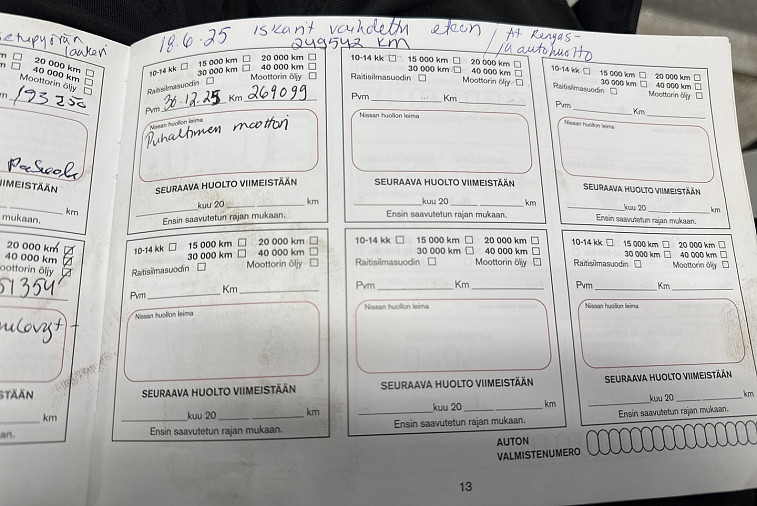 18.6.25 Iskarit vaihdettu eteen / At Rengas-
249542 km / ja autohuolto
laakeri
20 000 km
40 000 km
Moottorin öljy
193 250
IIMEISTÄÄN
km
mukaan.
20 000 km
40 000 km
oottorin öljy
51354
STÄÄN
km
an.
10-14 kk 15 000 km 20 000 km
30 000 km 40 000 km
Raitisilmasuodin Moottorin öljy
Pvm 30.12.25 Km 269099
Nissan huollon leima
Puhaltimen moottori
SEURAAVA HUOLTO VIIMEISTÄÄN
kuu 20 km
Ensin saavutetun rajan mukaan.
10-14 kk 15 000 km 20 000 km
30 000 km 40 000 km
Raitisilmasuodin Moottorin öljy
Pvm Km
Nissan huollon leima
SEURAAVA HUOLTO VIIMEISTÄÄN
kuu 20 km
Ensin saavutetun rajan mukaan.
10-14 kk 15 000 km 20 000 km
30 000 km 40 000 km
Raitisilmasuodin Moottorin öljy
Pvm Km
Nissan huollon leima
SEURAAVA HUOLTO VIIMEISTÄÄN
kuu 20 km
Ensin saavutetun rajan mukaan.
10-14 kk 15 000 km 20 000 km
30 000 km 40 000 km
Raitisilmasuodin Moottorin öljy
Pvm Km
Nissan huollon leima
SEURAAVA HUOLTO VIIMEISTÄÄN
kuu 20 km
Ensin saavutetun rajan mukaan.
10-14 kk 15 000 km 20 000 km
30 000 km 40 000 km
Raitisilmasuodin Moottorin öljy
Pvm Km
Nissan huollon leima
SEURAAVA HUOLTO VIIMEISTÄÄN
kuu 20 km
Ensin saavutetun rajan mukaan.
10-14 kk 15 000 km 20 000 km
30 000 km 40 000 km
Raitisilmasuodin Moottorin öljy
Pvm Km
Nissan huollon leima
SEURAAVA HUOLTO VIIMEISTÄÄN
kuu 20 km
Ensin saavutetun rajan mukaan.
AUTON
VALMISTENUMERO
13